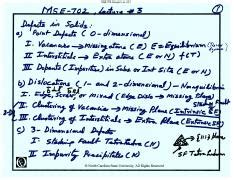 MSE-702, Lecture # 3
Defects in Solids:
a) Point Defects (0-dimensional)
I. Vacancy → Missing atom (E) E = Equilibrium
II. Interstitials → Extra atom (E or N) f(T)
III. Defects (Impurities) in Subs or Int Sites (E or N)
b) Dislocations (1- and 2-dimensional) - Nonequilib
I. Edge, Screw or mixed (Edge Disln → Missing Plane)
II. Clustering of Vacancies → Missing Plane (Intrinsic SF)
III. Clustering of Interstitials → Extra Plane (Extrinsic SF)
Stacking Fault
c) 3-Dimensional Defects
I. Stacking Fault Tetrahedra (N)
II. Impurity Precipitates (N)
{111} Planes
SF Tetrahedron
© North Carolina State University, All Rights Reserved